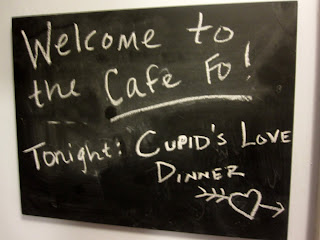 Welcome to
the Cafe Fo!
Tonight: Cupid's Love
Dinner